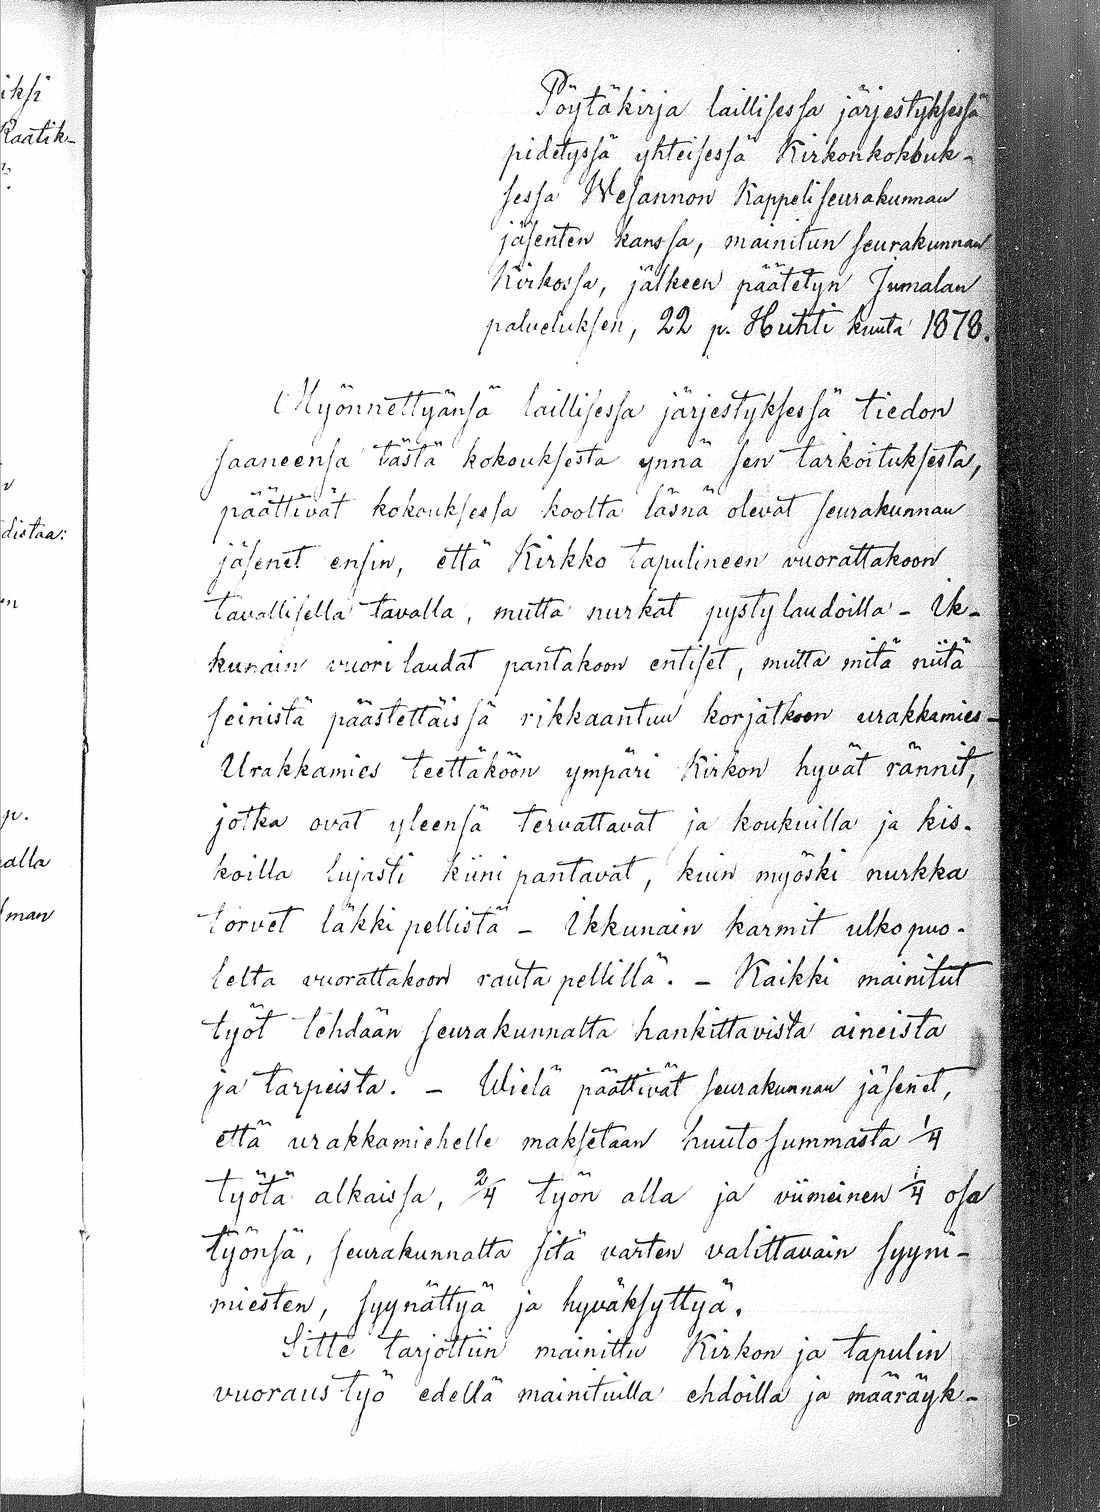 iksi
Raatik-
distaa:
en
p.
alla
lman
Pöytäkirja laillisessa järjestyksessä
pidetyssä yhteisessä Kirkonkokouk-
sessa Wesannon Kappeliseurakunnan
jäsenten kanssa, mainitun seurakunnan
Kirkossa, jälkeen päätetyn Jumalan
palveluksen, 22 p. Huhti kuuta 1878.
Myönnettyänsä laillisessa järjestyksessä tiedon
saaneensa tästä kokouksesta ynnä sen tarkoituksesta,
päättivät kokouksessa koolta läsnä olevat seurakunnan
jäsenet ensin, että Kirkko tapulineen vuorattakoon
tavallisella tavalla, mutta nurkat pysty laudoilla - Ik-
kunain vuori laudat pantakoon entiset, mutta mitä niitä
seinistä päästettäissä rikkaantuu korjatkoon urakkamies -
Urakkamies teettäköön ympäri Kirkon hyvät rännit,
jotka ovat yleensä tervattavat ja koukuilla ja kis-
koilla lujasti kiini pantavat, kuin myöski nurkka
torvet läkki pellistä - Ikkunain karmit ulko puo-
lelta vuorattakoon rauta pellillä. - Kaikki mainitut
työt tehdään seurakunnalta hankittavista aineista
ja tarpeista. - Wielä päättivät seurakunnan jäsenet,
että urakkamiehelle maksetaan huuto summasta 1/4
työtä alkaissa, 2/4 työn alla ja viimeinen 1/4 osa
työnsä, seurakunnalta sitä varten valittavain syyni-
miesten, syynättyä ja hyväksyttyä.
Sitte tarjottiin mainittu Kirkon ja tapulin
vuoraus työ edellä mainituilla ehdoilla ja määräyk-